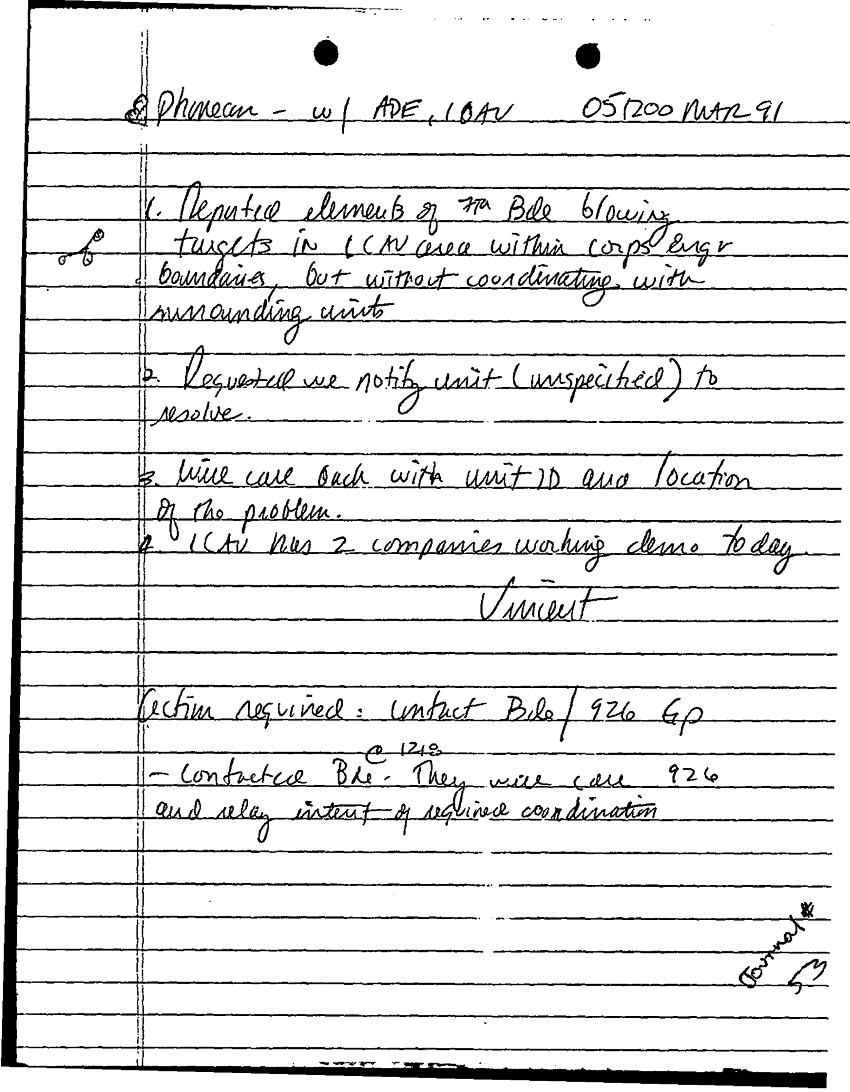 Phonecon - w/ ADE, 1CAV 051200 MAR 91
1. Reported elements of 7th Bde blowing
targets in 1CAV area within corps Engr
boundaries, but without coordinating with
surrounding units
2. Requested we notify unit (unspecified) to
resolve.
3. Will call back with unit ID and location
of the problem.
4. 1CAV has 2 companies working demo today.
Vincent
Action required: contact Bde / 926 Gp
@ 1218
- Contacted Bde. They will call 926
and relay intent of required coordination
Journal #
53